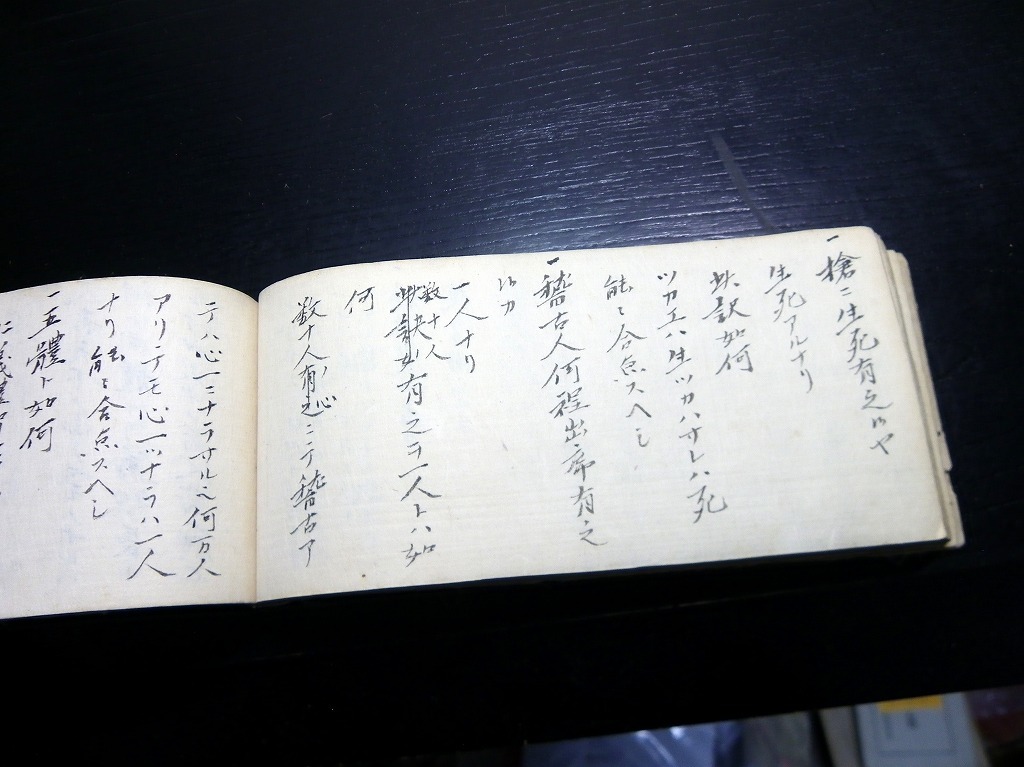 一槍ニ生死有之候ヤ
生死アルナリ
此訳如何
ツカエハ生ツカハサレハ死
能々合点スヘシ
一稽古人何程出席有之
候カ
一人ナリ
数十人有之ヲ一人トハ如
何
数十人有之心ニテ稽古ア
ニハ心一ニナラサル何万人
アリテモ心一ツナラハ一人
ナリ能々合点スヘシ
一五體ト如何